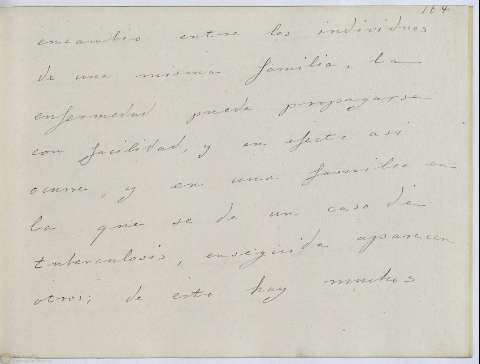 104
en cambio entre los individuos
de una misma familia, la
enfermedad puede propagarse
con facilidad, y en efecto asi
ocurre, y en una familia en
la que se da un caso de
tuberculosis, enseguida aparecen
otros; de esto hay muchos